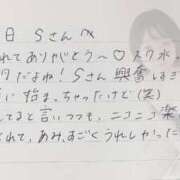 日 Sさんへ
れてありがとう〜♡スク水
だよね！Sさん興奮しま
に始まっちゃったけど(笑)
てると言いつつも、ニコニコ楽
くれて、あみ、すごくうれしかった